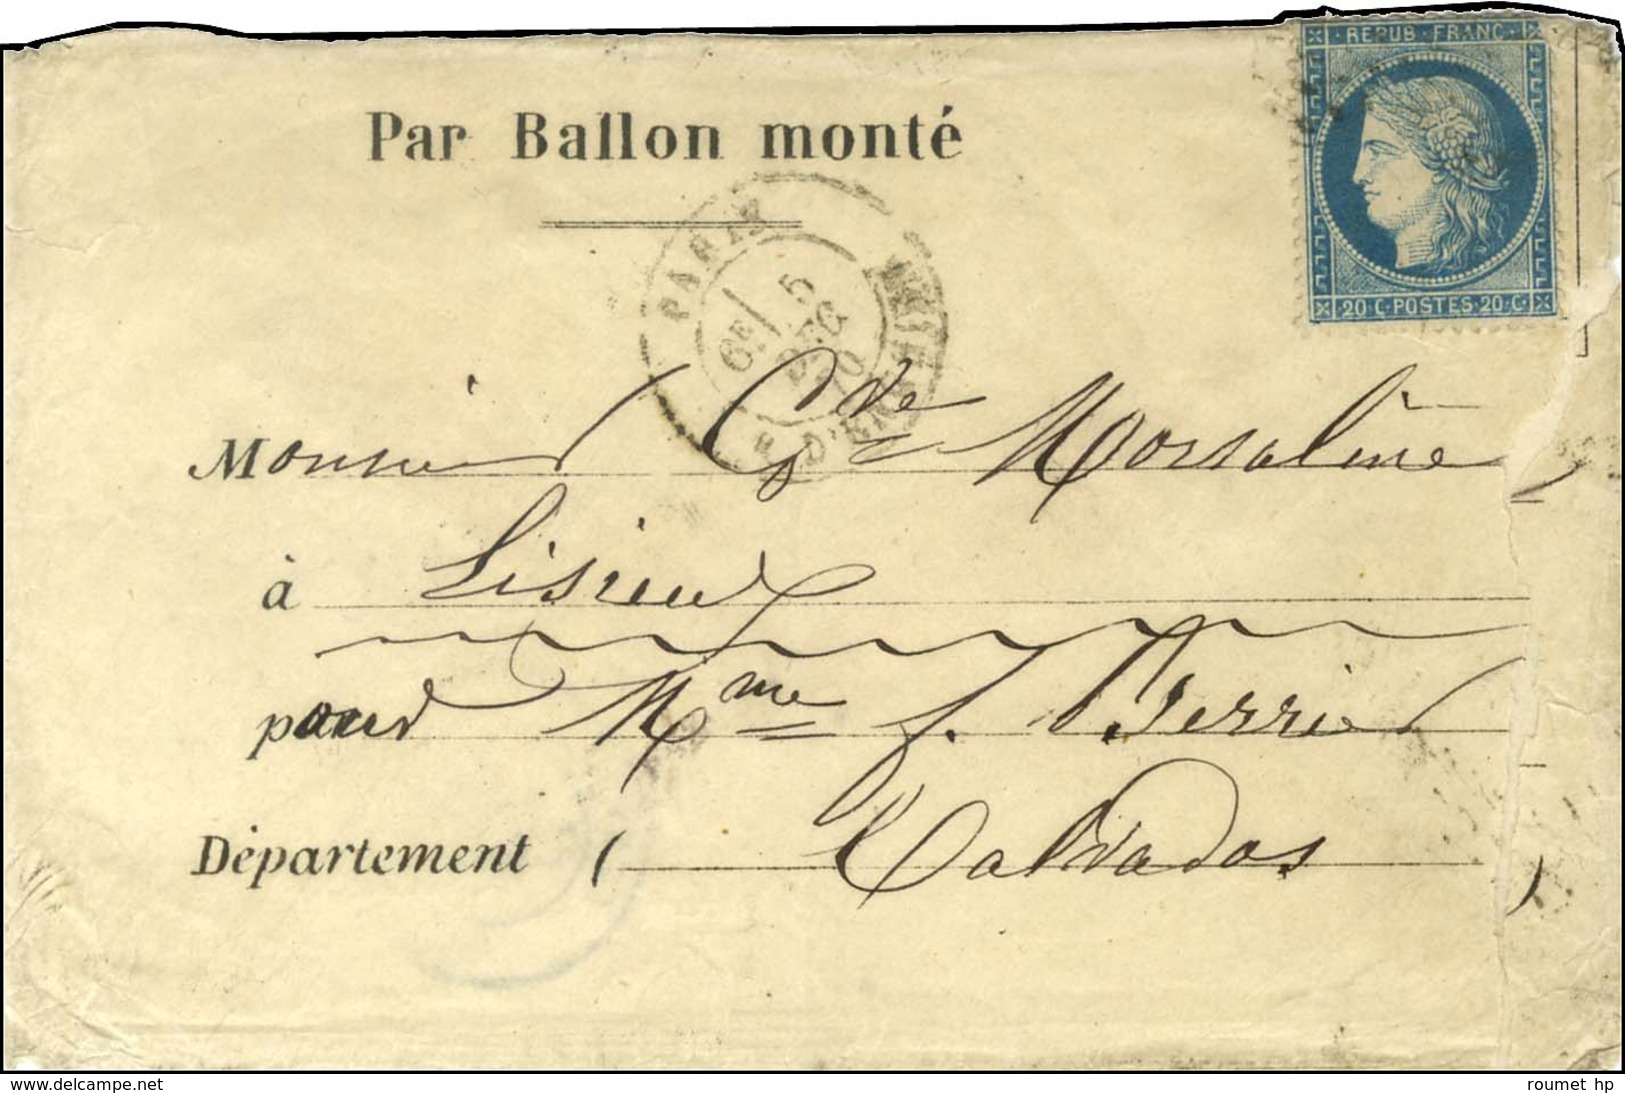 REPUB·FRANC·
Par Ballon monté
20 C·POSTES·20·C·
PARIS
6E 5
DEC
70
R. D'ENGHIEN
Monsieur Cte de Morsaline
à Lisieux
pour Mme f. Perrier
Département ( Calvados )
www.delcampe.net
roumet hp